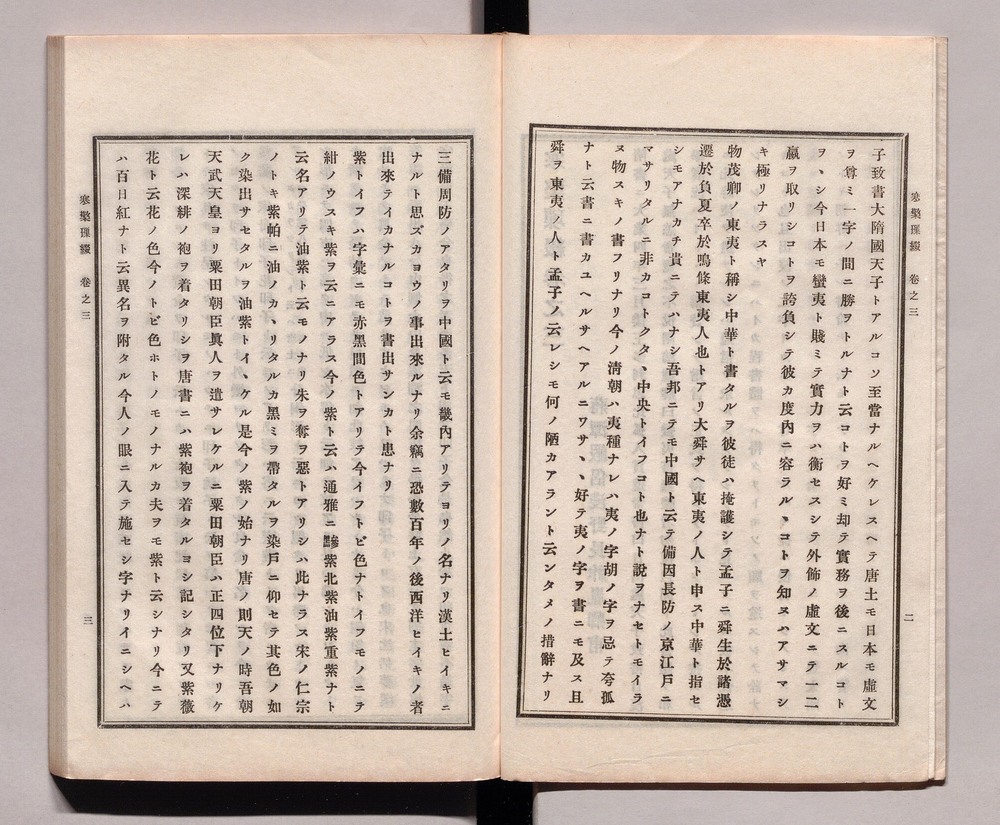 寒檠璅綴 卷之三
二
子致書大隋國天子トアルコソ至當ナルヘケレスヘテ唐土モ日本モ虛文
ヲ尊ミ一字ノ間ニ勝ヲトルナト云コトヲ好ミ却テ實務ヲ後ニスルコト
ヲヽシ今日本モ蠻夷ト賤ミテ實力ヲハ衡セスシテ外飾ノ虛文ニテ一二
嬴ヲ取リシコトヲ誇負シテ彼カ度內ニ容ラルヽコトヲ知スハアサマシ
キ極リナラスヤ
物茂卿ノ東夷ト稱シ中華ト書タルヲ彼徒ハ掩護シテ孟子ニ舜生於諸憑
遷於負夏卒於鳴條東夷人也トアリ大舜サヘ東夷ノ人ト申ス中華ト指セ
シモアナカチ貴ニテハナシ吾邦ニテモ中國ト云テ備因長防ノ京江戶ニ
マサリタルニ非カコトクタヽ中央トイフコト也ナト說ヲナセトモイラ
ヌ物スキノ書フリナリ今ノ淸朝ハ夷種ナレハ夷ノ字胡ノ字ヲ忌テ夸孤
ナト云書ニ書カユヘルサヘアルニワサヽヽ好テ夷ノ字ヲ書ニモ及ス且
舜ヲ東夷ノ人ト孟子ノ云レシモ何ノ陋カアラント云ンタメノ措辭ナリ
三備周防ノアタリヲ中國ト云モ畿內アリテヨリノ名ナリ漢土ヒイキニ
ナルト思ズカヨウノ事出來ルナリ余竊ニ恐數百年ノ後西洋ヒイキノ者
出來テイカナルコトヲ書出サンカト患ナリ
紫トイフハ字彙ニモ赤黑間色トアリテ今イフトビ色ナトイフモノニテ
紺ノウスキ紫ヲ云ニアラス今ノ紫ト云ハ通雅ニ黲紫北紫油紫重紫ナト
云名アリテ油紫ト云モノナリ朱ヲ奪ヲ惡トアリシハ此ナラス宋ノ仁宗
ノトキ紫帕ニ油ノカヽリタルカ黑ミヲ帶タルヲ染戶ニ仰セテ其色ノ如
ク染出サセタルヲ油紫トイヽケル是今ノ紫ノ始ナリ唐ノ則天ノ時吾朝
天武天皇ヨリ粟田朝臣眞人ヲ遣サレケルニ粟田朝臣ハ正四位下ナリケ
レハ深緋ノ袍ヲ着タリシヲ唐書ニハ紫袍ヲ着タルヨシ記シタリ又紫薇
花ト云花ノ色今ノトビ色ホトノモノナルカ夫ヲモ紫ト云シナリ今ニテ
ハ百日紅ナト云異名ヲ附タル今人ノ眼ニ入テ施セシ字ナリイニシヘハ
寒檠璅綴 卷之三
三